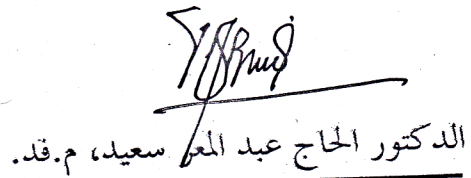 الدكتور الحاج عبد المعز سعيد، م.قد.